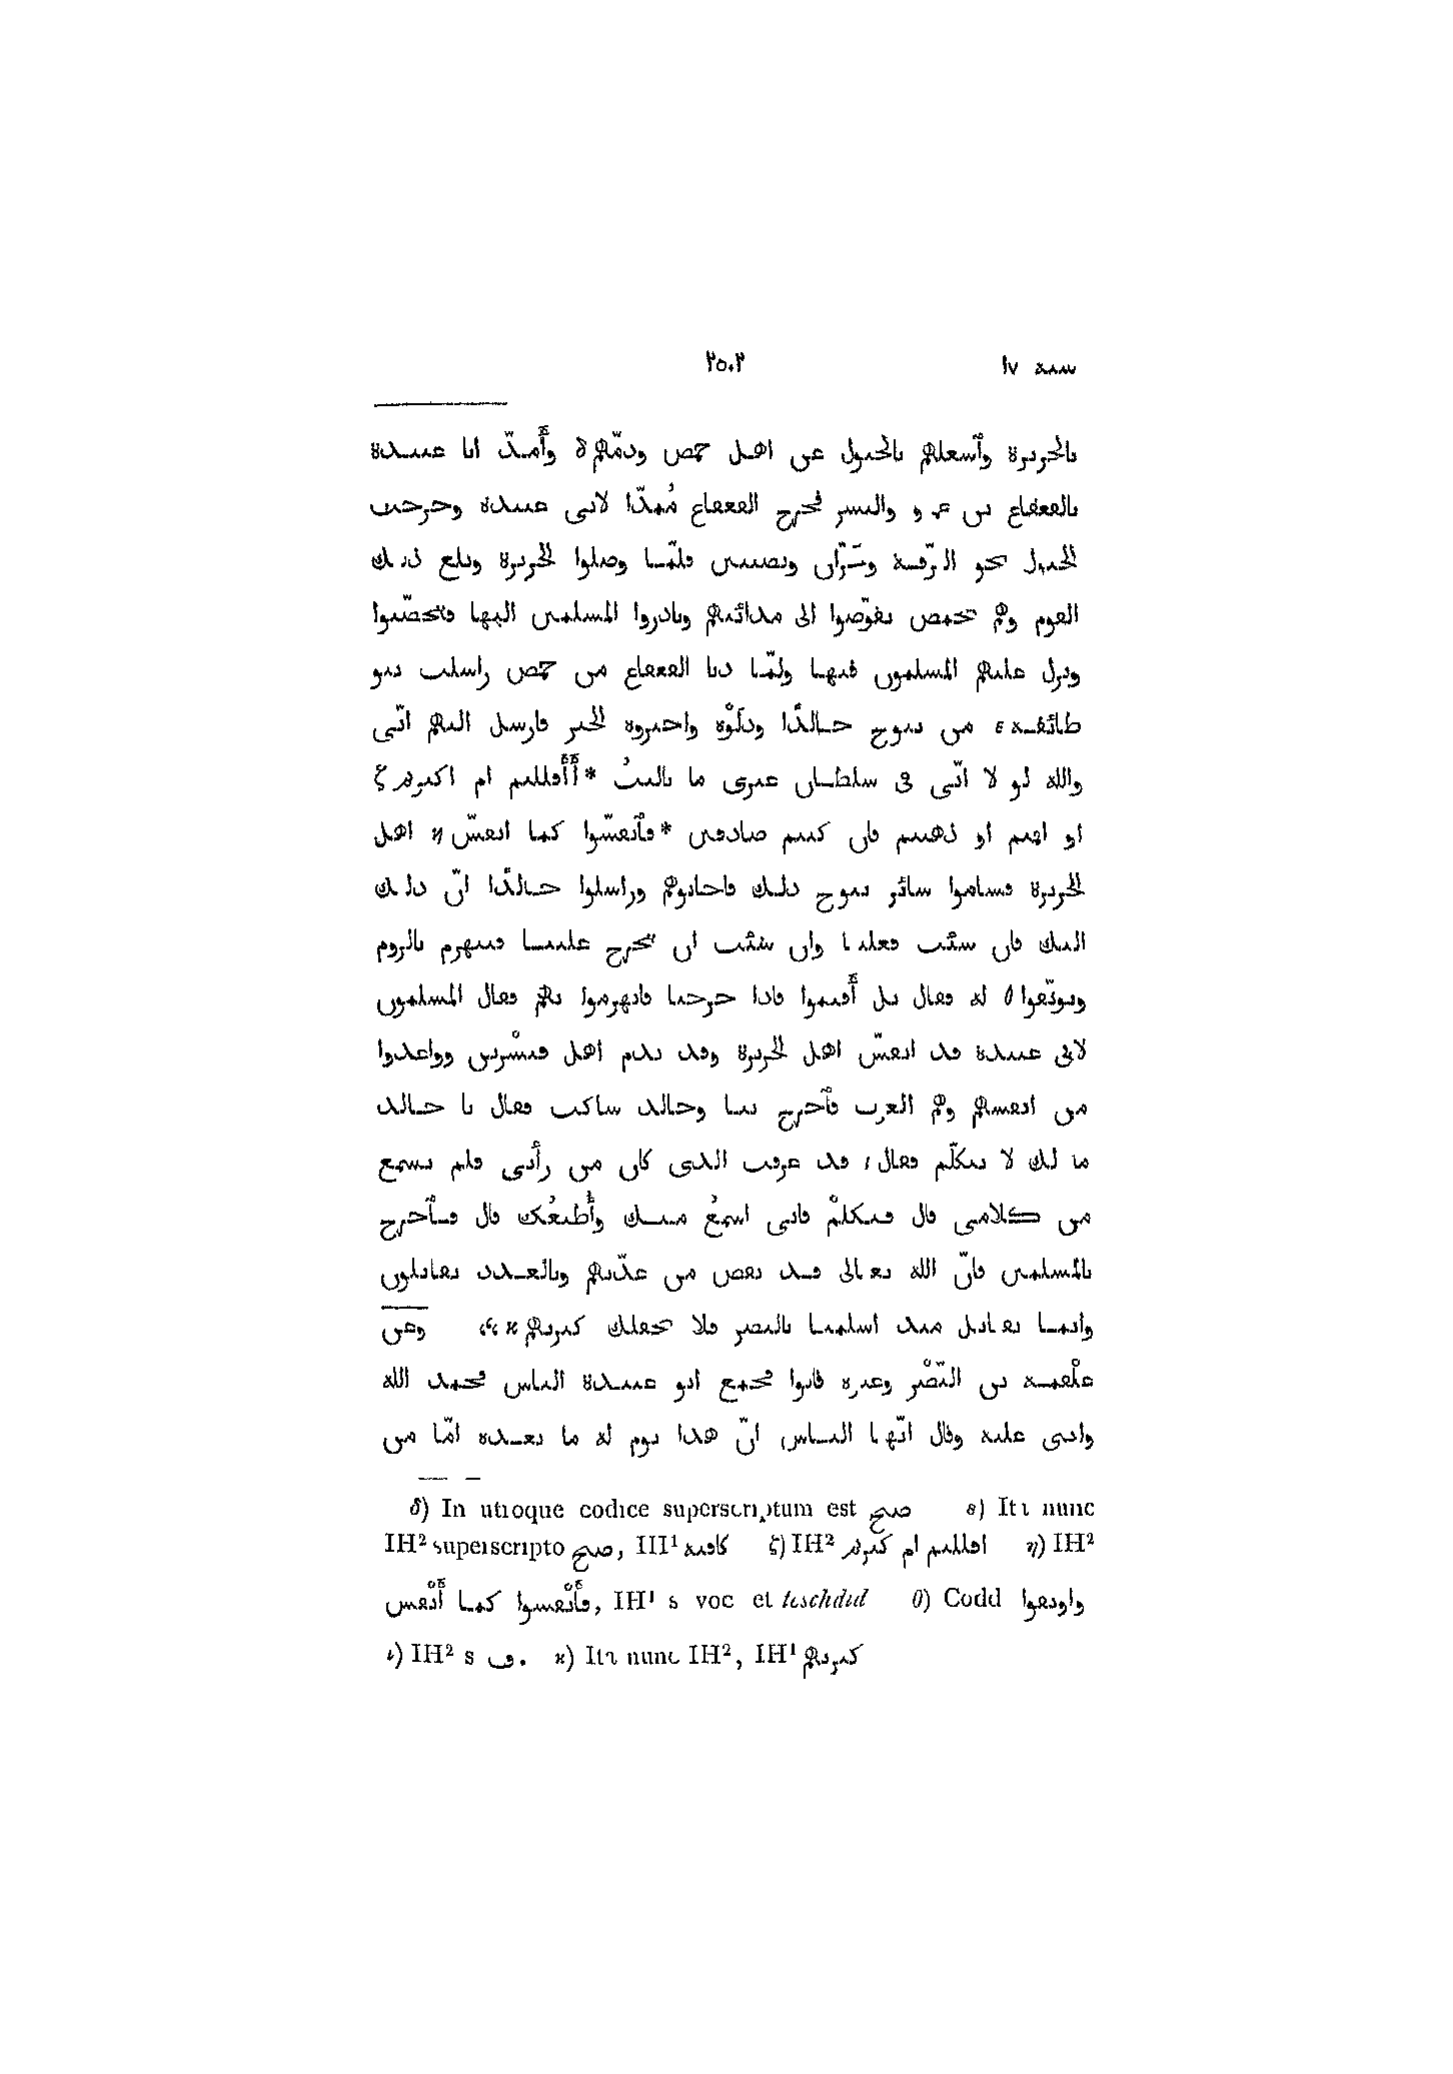 سنة ١٧ ٢٥٠٢
بالجزيرة وٱشغلهم بالخيول عن اهل حمص ودمّهم δ وأَمدّ ابا عبيدة
بالقعقاع بن عمرو والبسر فخرج القعقاع مُمدّا لابى عبيدة وخرجت
الخيول نحو الرّقة وحَرّان ونصيبين فلمّا وصلوا الجزيرة وبلغ ذلك
القوم وهم بحمص تقوّضوا الى مدائنهم وبادروا المسلمين اليها فتحصّنوا
ونزل عليهم المسلمون فيها ولمّا دنا القعقاع من حمص راسلت بنو
طائفة ε من تنوخ خالدًا ودلّوْه واخبروه الخبر فارسل اليهم انّى
والله لو لا انّى فى سلطان غيرى ما باليتُ *أَأَقللتم ام اكثرتم ζ
او اقمتم او ذهبتم فان كنتم صادقين *فٱنفشّوا كما انفشّ η اهل
الجزيرة فساموا سائر تنوخ ذلك فاجابوهم وراسلوا خالدًا انّ ذلك
اليك فان شئت فعلنا وان شئت ان تخرج علينا فننهزم بالروم
وتوثّقوا θ له فقال بل أَقيموا فاذا خرجنا فانهزموا بهم فقال المسلمون
لابى عبيدة قد انفشّ اهل الجزيرة وقد ندم اهل قنسْرين وواعدوا
من انفسهم وهم العرب فٱخرج بنا وخالد ساكت فقال يا خالد
ما لك لا تتكلّم فقال ι قد عرفت الذى كان من رأْيى فلم تسمع
من كلامى قال فتكلمْ فانى اسمعُ منك وأُطيعُك قال فٱخرج
بالمسلمين فانّ الله تعالى قد نقص من عدّتهم وبالعدد يقاتلون
وانما نقاتل منذ اسلمنا بالنصر فلا تحفلك كثرتهم κ ٭ وعن
علْقمة بن النّضْر وغيره قالوا فجمع ابو عبيدة الناس فحمد الله
واثنى عليه وقال ايّها الناس انّ هذا يوم له ما بعده امّا من
δ) In utroque codice superscriptum est صح ε) Ita nunc
IH² superscripto صح, IH¹ كافة ζ) IH² اقللتم ام كثرتم η) IH²
فأَنْفسوا كما أَنْفس, IH¹ s voc et teschdid θ) Codd واوثقوا
ι) IH² s ف. κ) Ita nunc IH², IH¹ كثرتهم